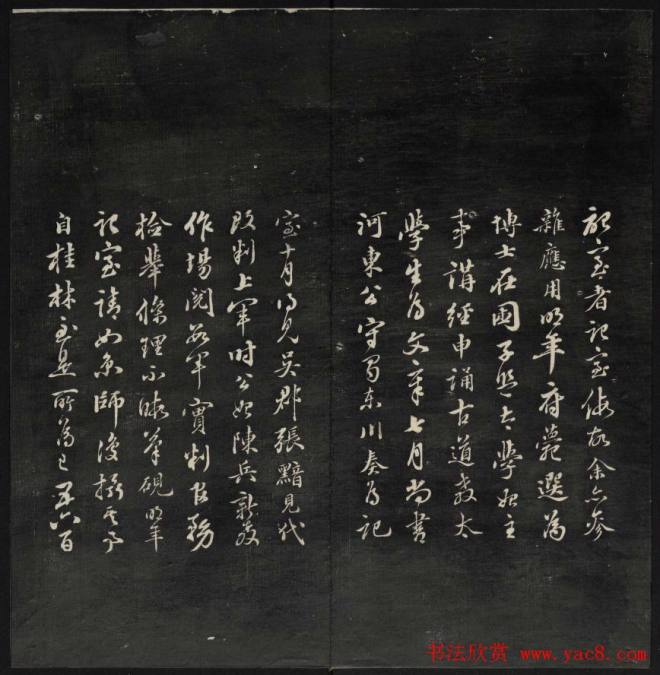 記室者記室假故余亦參
雜應用明年府薨選為
博士在國子監太學始主
事講經申誦古道教太
學生為文章七月尚書
河東公守蜀東川奏為記
室十月得見吳郡張黯見代
改判上軍時公始陳兵新教
作場閱數軍實判官務
檢舉條理不暇筆硯明年
記室請如京師復攝其事
自桂林至是所為已五六百
书法欣赏 www.yac8.com